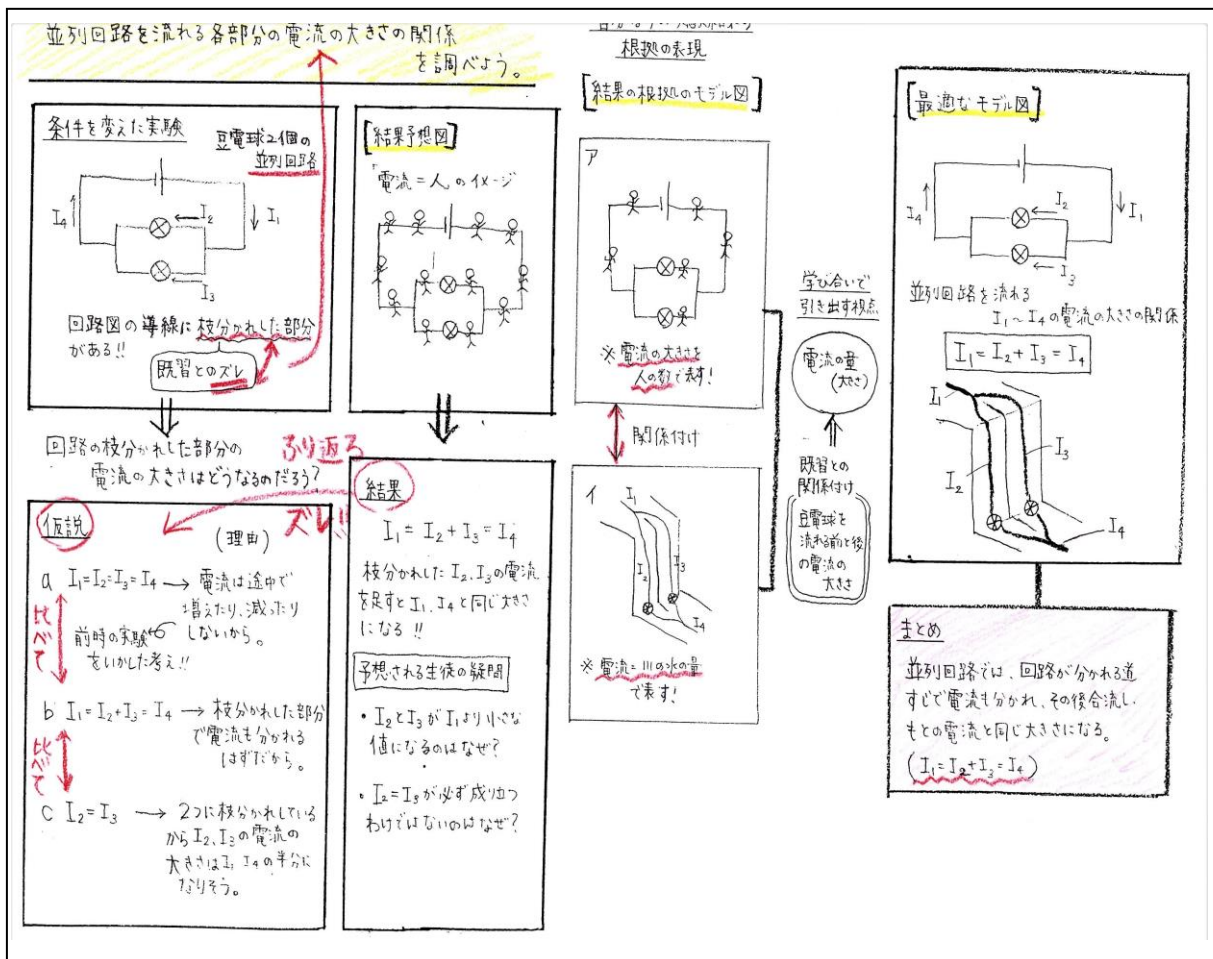 並列回路を流れる各部分の電流の大きさの関係
を調べよう。
条件を変えた実験
豆電球2個の
並列回路
I4
I2
I1
I3
回路図の導線に枝分かれした部分
がある!!
既習とのズレ
回路の枝分かれした部分の
電流の大きさはどうなるのだろう?
仮説
(理由)
a I1=I2=I3=I4 → 電流は途中で
増えたり、減ったり
しないから。
前時の実験
をいかした考え!!
比べて
b I1=I2+I3=I4 → 枝分かれした部分
で電流も分かれる
はずだから。
比べて
c I2=I3 → 2つに枝分かれしている
からI2、I3の電流の
大きさはI1 I4の半分に
なりそう。
[結果予想図]
電流=人のイメージ
ふり返る
ズレ!!
結果
I1=I2+I3=I4
枝分かれしたI2、I3の電流
を足すとI1、I4と同じ大きさ
になる!!
予想される生徒の疑問
・I2とI3がI1より小さな
値になるのはなぜ?
・I2=I3が必ず成り立つ
わけではないのはなぜ?
根拠の表現
[結果の根拠のモデル図]
ア
※電流の大きさを
人の数で表す!
関係付け
イ
I1
I2
I3
I4
※電流=川の水の量
で表す!
学び合いで
引き出す視点
電流の量
(大きさ)
既習との
関係付け
豆電球を
流れる前と後
の電流の
大きさ
[最適なモデル図]
I4
I2
I1
I3
並列回路を流れる
I1~I4の電流の大きさの関係
I1=I2+I3=I4
I1
I3
I2
I4
まとめ
並列回路では、回路が分かれる道
すじで電流も分かれ、その後合流し、
もとの電流と同じ大きさになる。
(I1=I2+I3=I4)